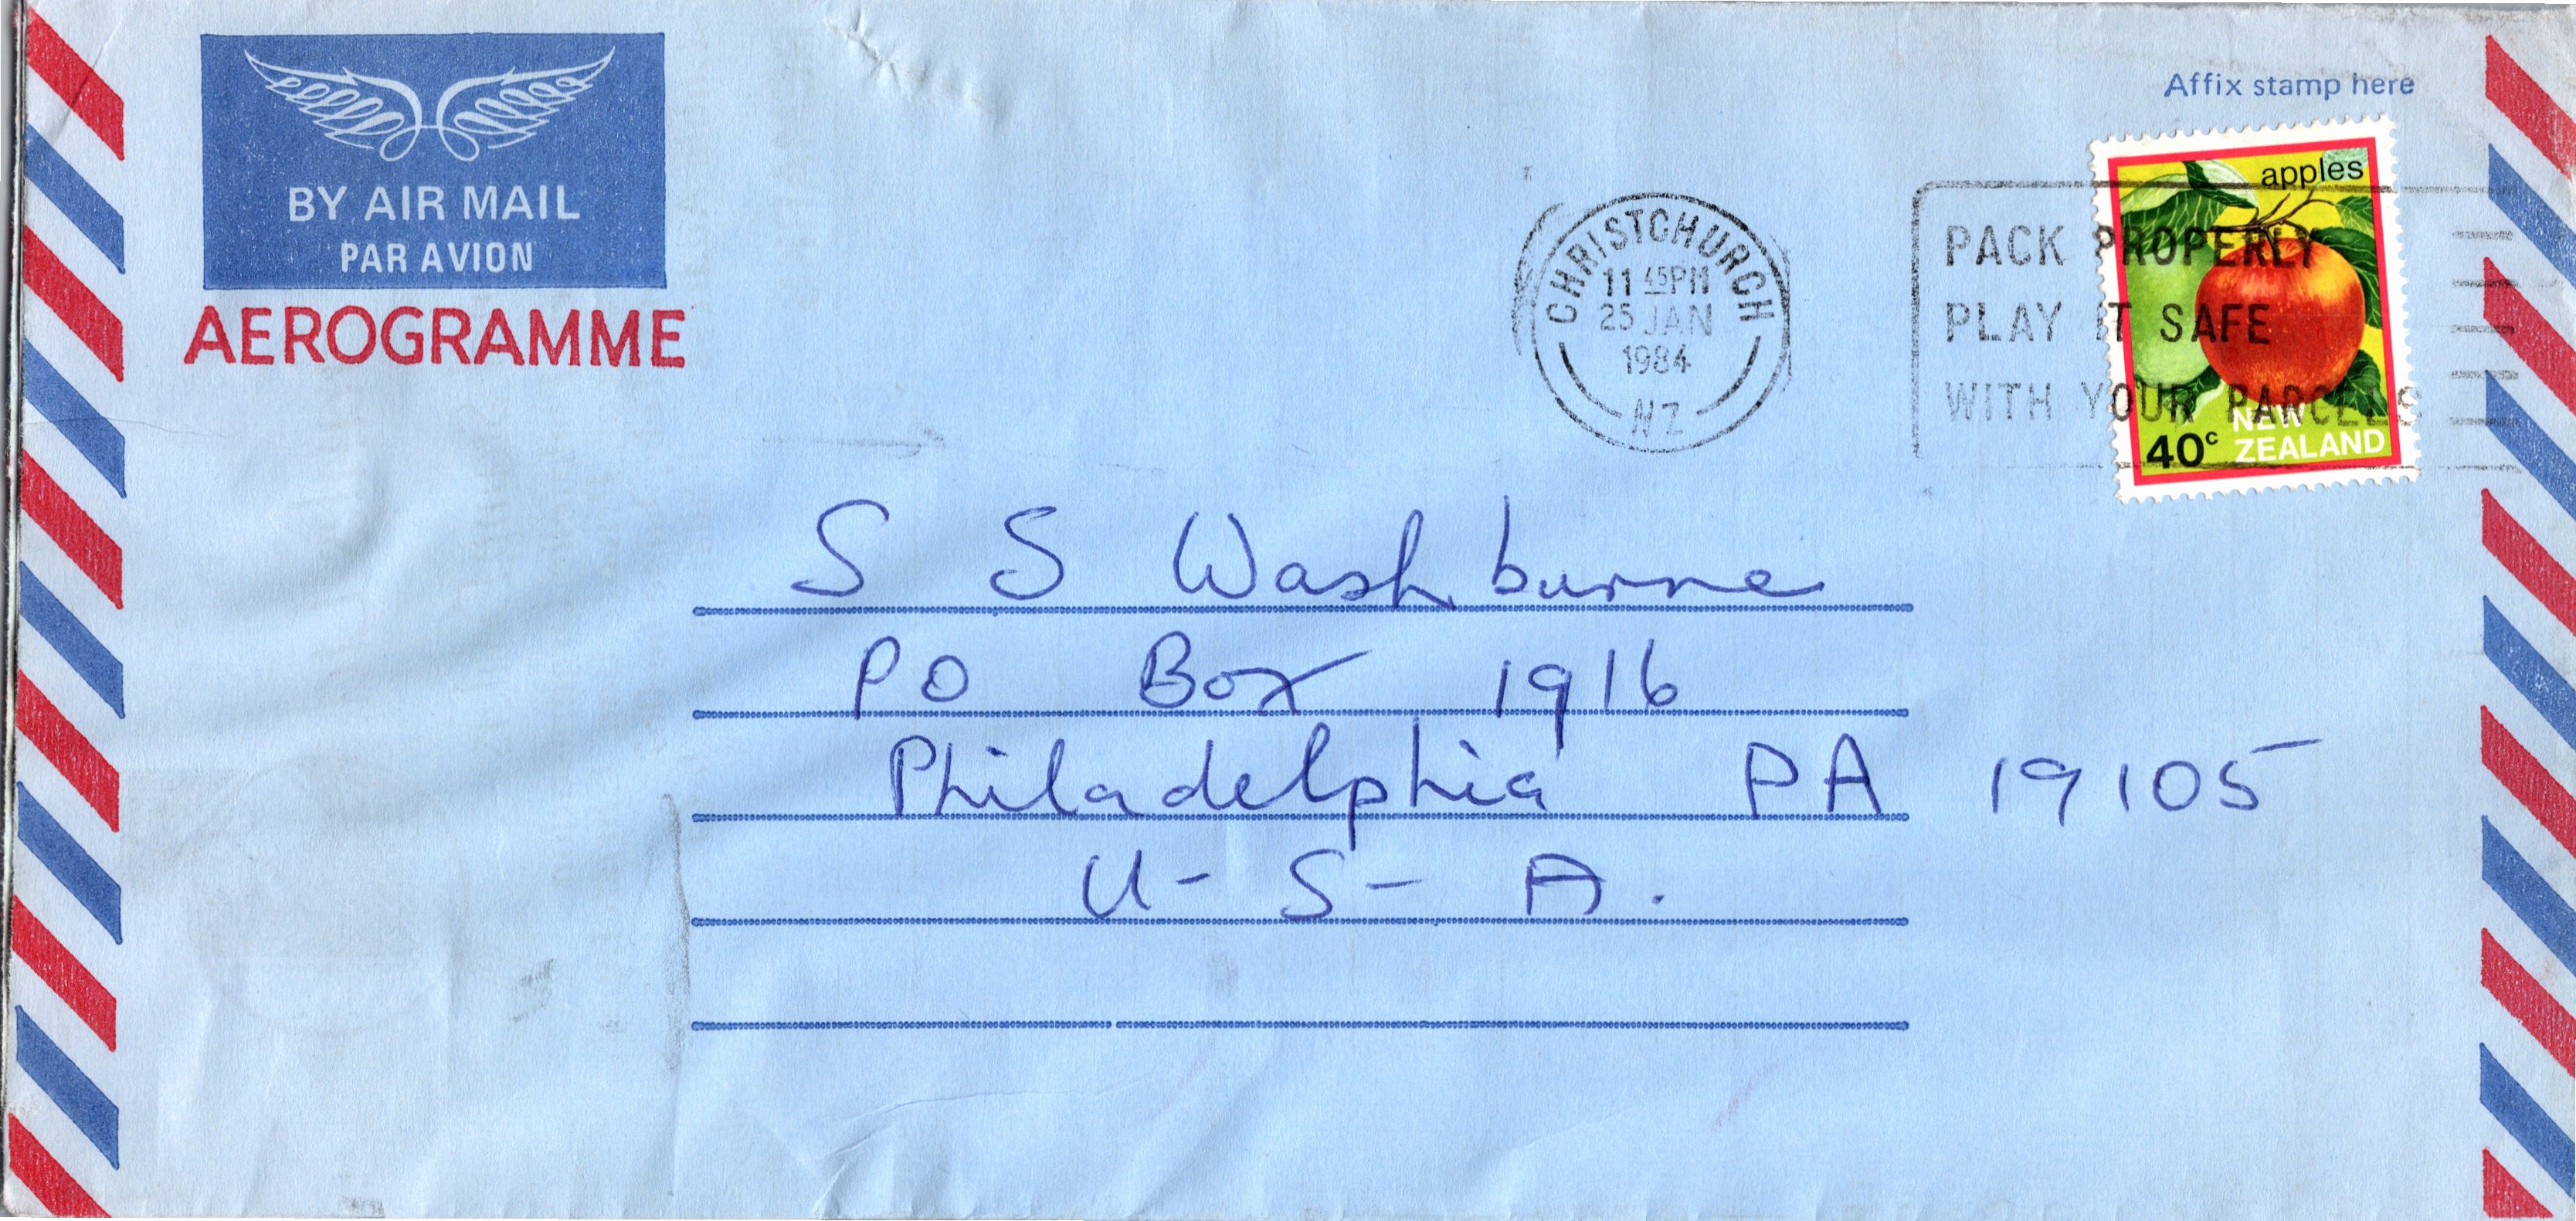 BY AIR MAIL
PAR AVION
AEROGRAMME
Affix stamp here
apples
40c NEW
ZEALAND
CHRISTCHURCH
11 45PM
25 JAN
1984
NZ
PACK PROPERLY
PLAY IT SAFE
WITH YOUR PARCELS
S S Washburne
PO Box 1916
Philadelphia PA 19105
U - S - A.